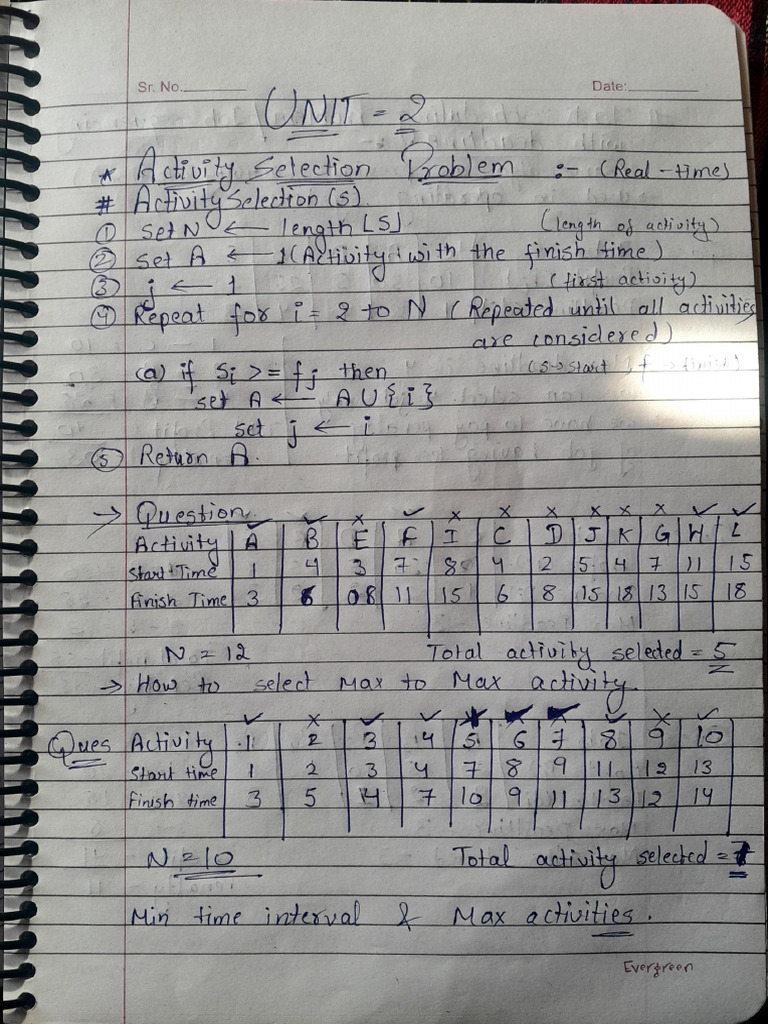 Sr. No. Date:
UNIT = 2
* Activity Selection Problem :- (Real-time)
# Activity Selection (S)
① Set N ← length [S] (length of activity)
② set A ← 1 (Activity 1 with the finish time)
③ j ← 1 (first activity)
④ Repeat for i = 2 to N (Repeated until all activities
are considered)
(a) if Si >= fj then (s→start, f→finish)
set A ← A U {i}
set j ← i
⑤ Return A.
→ Question ✓ ✓ x ✓ x x x x x x ✓ ✓
Activity A B E F I C D J K G H L
Start Time 1 4 3 7 8 4 2 5 4 7 11 15
Finish Time 3 6 08 11 15 6 8 15 18 13 15 18
N = 12 Total activity selected = 5
→ How to select Max to Max activity.
✓ x ✓ ✓ ✓ ✓ x ✓
Ques Activity 1 2 3 4 5 6 7 8 9 10
Start time 1 2 3 4 7 8 9 11 12 13
Finish time 3 5 14 7 10 9 11 13 12 14
N = 10 Total activity selected = 7
Min time interval & Max activities.
Evergreen